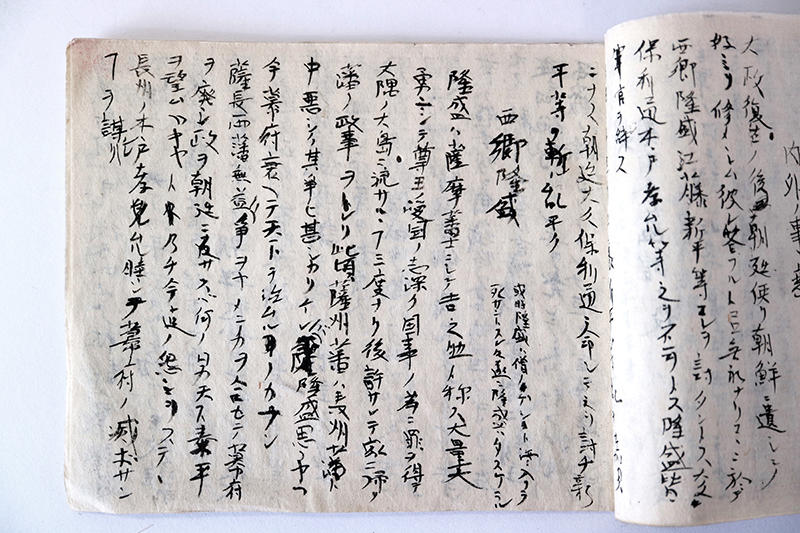 内外ノ事
大政復古ノ後朝廷使ヲ朝鮮ニ遣シテ
好ミヲ修メシム彼レ答フルトコロ無礼ナリココニ於テ
西郷隆盛江藤新平等之ヲ討タントス大久
保利通木戸孝允等之ヲ不可トス隆盛皆
軍官ヲ辞ス
ニナス朝廷大久保利通ニ命シテ之ヲ討チ新
平等ヲ斬ニ乱平ク
西郷隆盛
或時隆盛ハ僧月ショト海ニ入テ
死サントスレ遂ニ隆盛ハタスケラル
隆盛ハ薩摩藩士ニシテ吉之助ト称ス大量丈
勇ニシテ尊王愛国ノ志深ク国事ノ為ニ罪ヲ得テ
大隅ノ大島ニ流サルルフ三度ナリ後許サレテ故ニ帰リ
藩ノ政事ヲトレリ此頃薩州藩ハ長州藩ト
中悪シク其争ヒ甚シカリキ隆盛思フヤウ
今幕府衰ヘテ天下ヲ治ムル事ノカナシ
薩長両藩無益ノ争ヲヤメ力ヲ合セテ幕府
ヲ廃シ政ヲ朝廷ニ復サスバ何ノ日天下ノ泰平
ヲ望ムベキヤト乃チ今迄ノ怨ミヲステ
長州ノ木戸孝允ト睦シテ幕府ノ滅サン
フヲ謀レリ